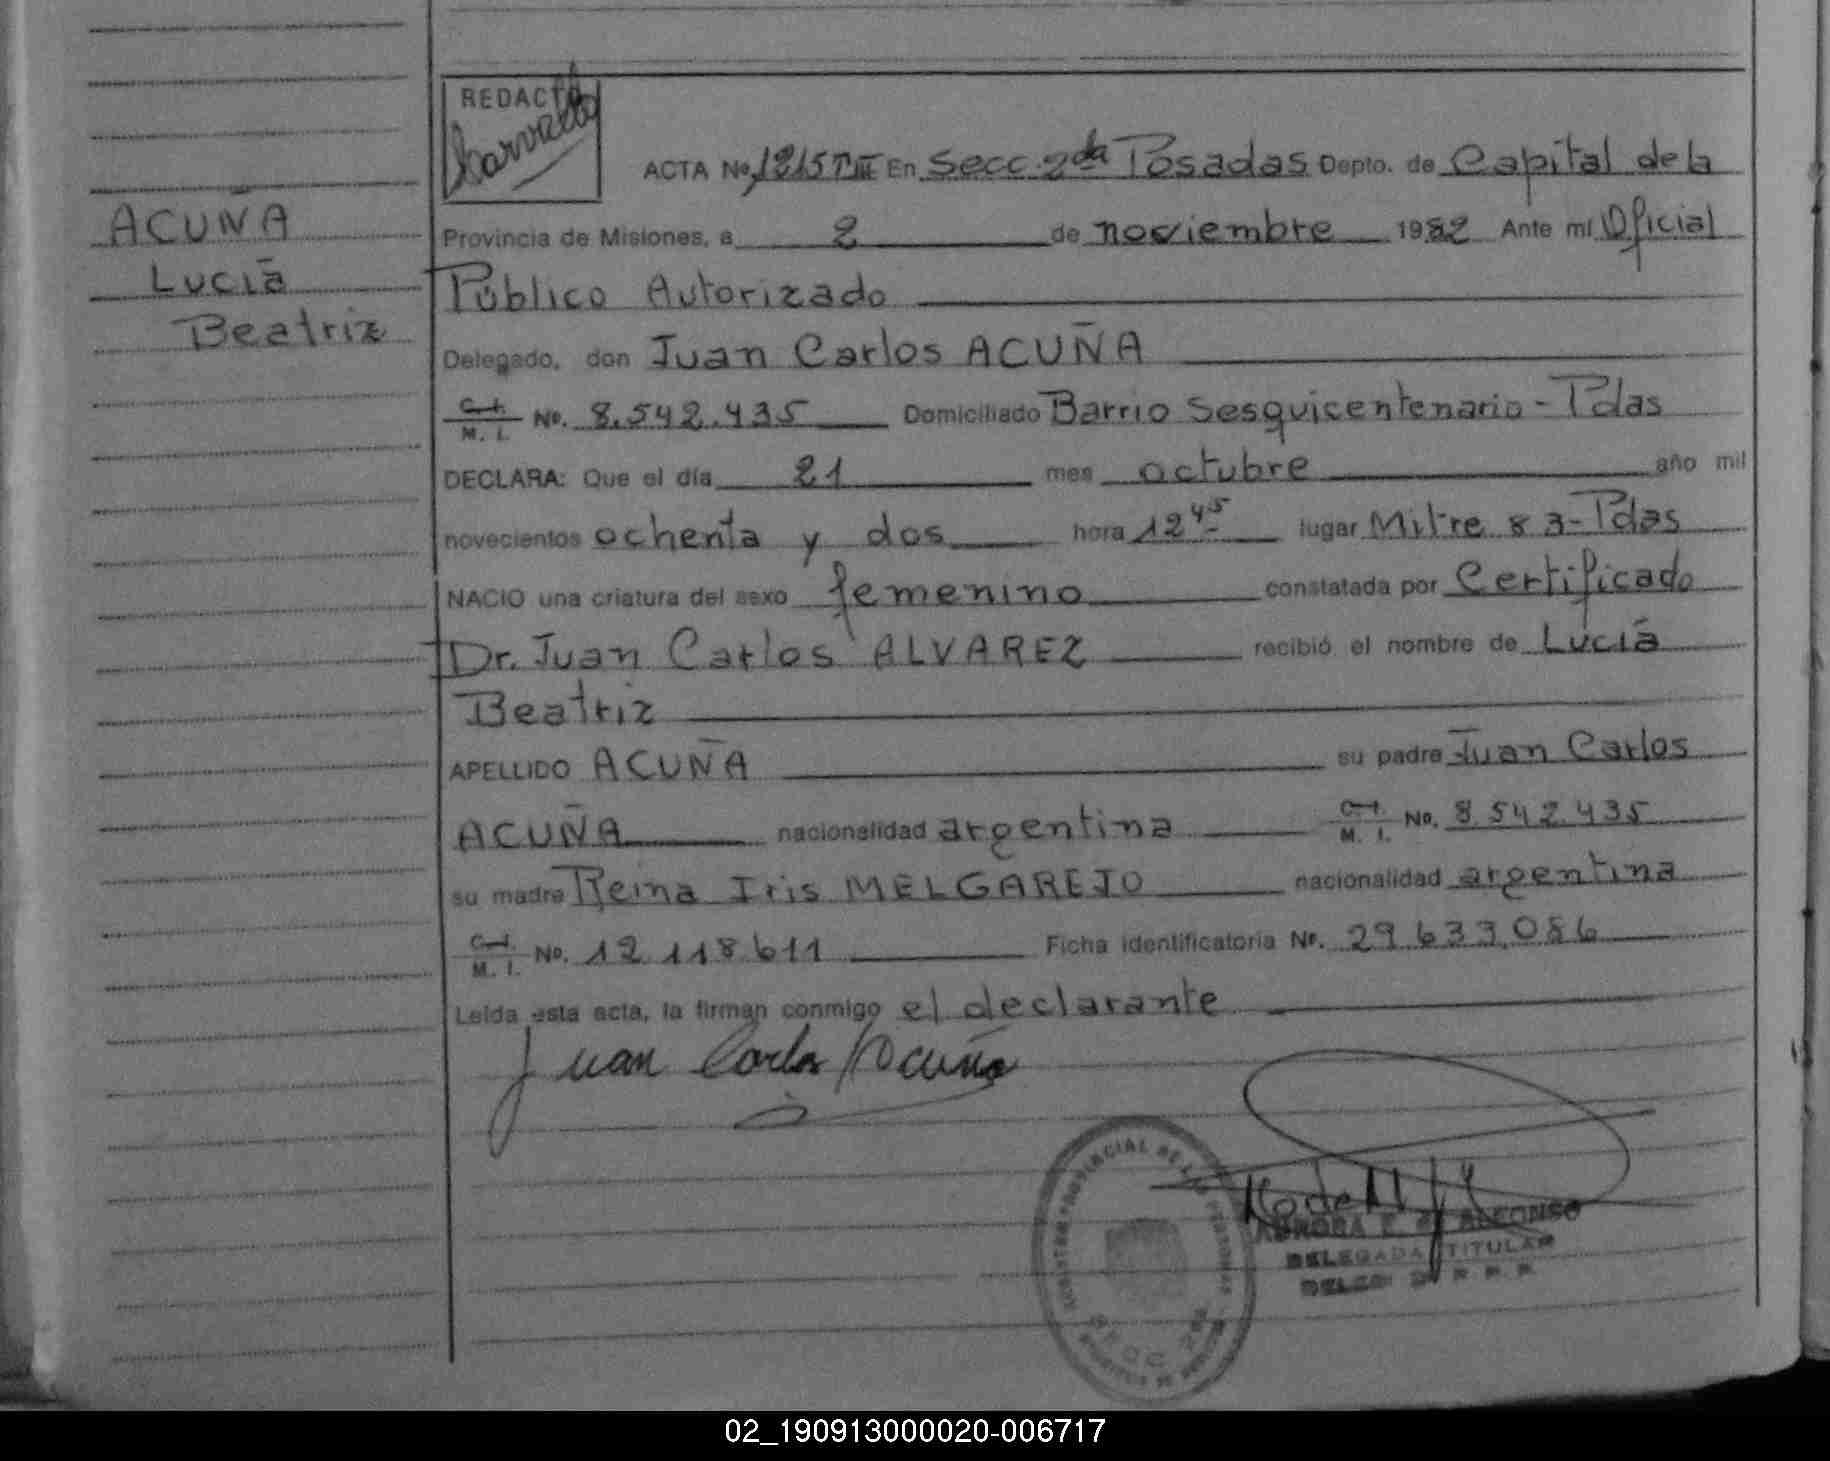 REDACTO
Carvallo
ACTA No. 1215 T III En Secc. 2da Posadas Depto. de Capital de la
ACUÑA
Lucía
Beatriz
Provincia de Misiones, a 2 de noviembre 1982 Ante mí Oficial
Público Autorizado
Delegado, don Juan Carlos ACUÑA
C. I. M. I. No. 8.542.435 Domiciliado Barrio Sesquicentenario - Pdas
DECLARA: Que el día 21 mes octubre año mil
novecientos ochenta y dos hora 12 45 lugar Mitre 83 - Pdas
NACIO una criatura del sexo femenino constatada por Certificado
Dr. Juan Carlos ALVAREZ recibió el nombre de Lucía
Beatriz
APELLIDO ACUÑA su padre Juan Carlos
ACUÑA nacionalidad argentina C. I. M. I. No. 8.542.435
su madre Reina Iris MELGAREJO nacionalidad argentina
C. I. M. I. No. 12.118.611 Ficha identificatoria Nº. 29.633.086
Leída esta acta, la firman conmigo el declarante
Juan Carlos Acuña
PROVINCIAL DE LAS PERSONAS
SECC. 2da
ALFONSO
DELEGADA TITULAR
02_190913000020-006717